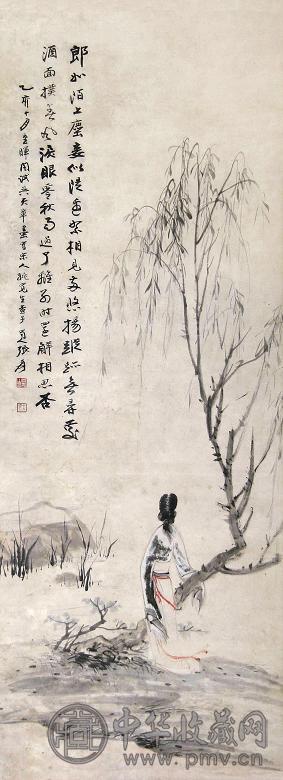 郎如陌上塵妾似隄邊絮相見兩悠揚蹤跡無尋處
酒面撲春風淚眼零秋雨過了離別時還解相思否
乙亥十月 宋人姚寬生查子 張爰
中华收藏网
www.pmv.cn